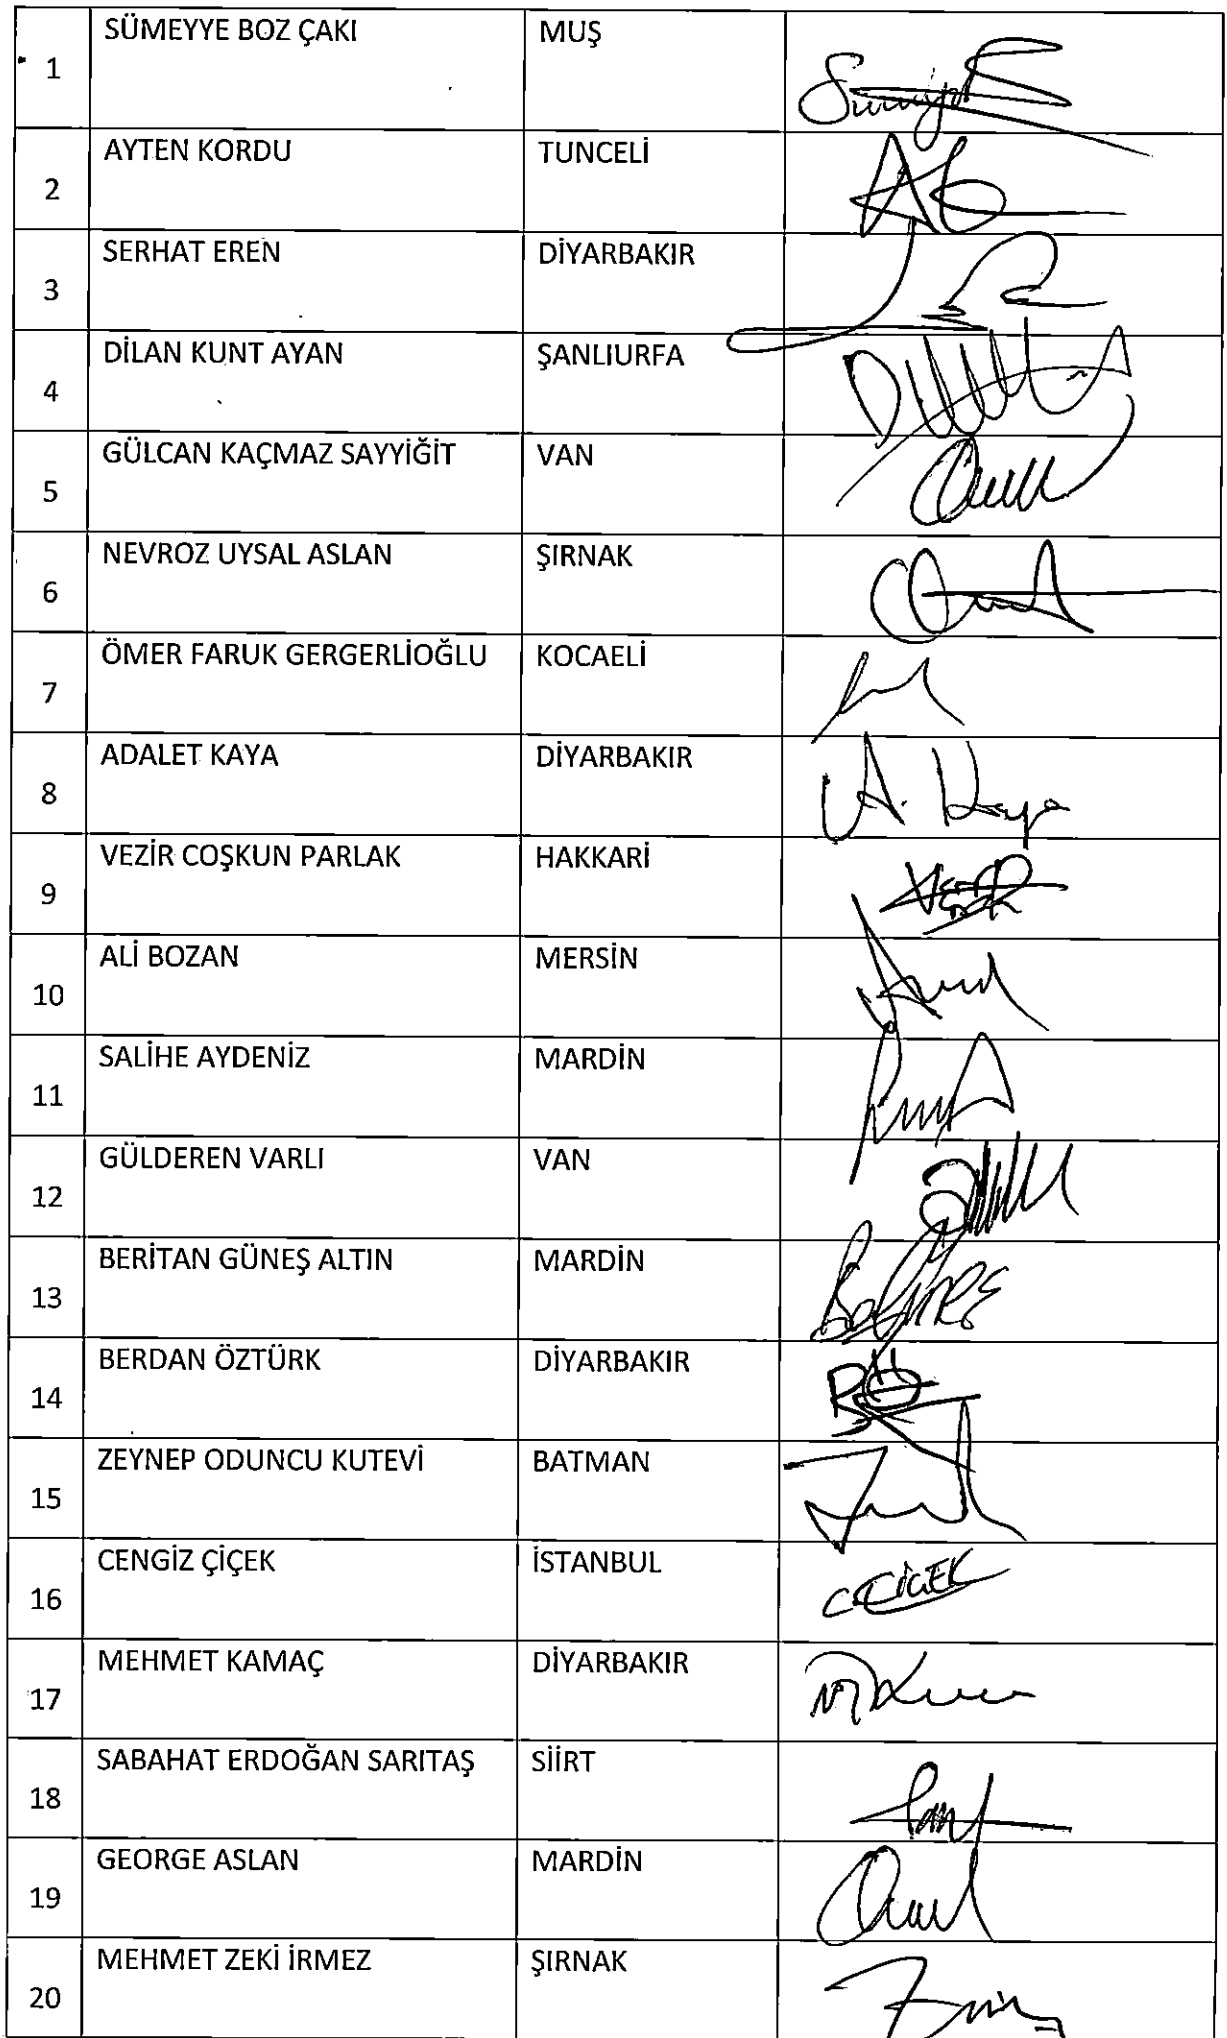 1 SÜMEYYE BOZ ÇAKI MUŞ
2 AYTEN KORDU TUNCELİ
3 SERHAT EREN DİYARBAKIR
4 DİLAN KUNT AYAN ŞANLIURFA
5 GÜLCAN KAÇMAZ SAYYİĞİT VAN
6 NEVROZ UYSAL ASLAN ŞIRNAK
7 ÖMER FARUK GERGERLİOĞLU KOCAELİ
8 ADALET KAYA DİYARBAKIR A. Kaya
9 VEZİR COŞKUN PARLAK HAKKARİ
10 ALİ BOZAN MERSİN
11 SALİHE AYDENİZ MARDİN
12 GÜLDEREN VARLI VAN
13 BERİTAN GÜNEŞ ALTIN MARDİN
14 BERDAN ÖZTÜRK DİYARBAKIR BÖ
15 ZEYNEP ODUNCU KUTEVİ BATMAN
16 CENGİZ ÇİÇEK İSTANBUL C.ÇİÇEK
17 MEHMET KAMAÇ DİYARBAKIR
18 SABAHAT ERDOĞAN SARITAŞ SİİRT
19 GEORGE ASLAN MARDİN
20 MEHMET ZEKİ İRMEZ ŞIRNAK